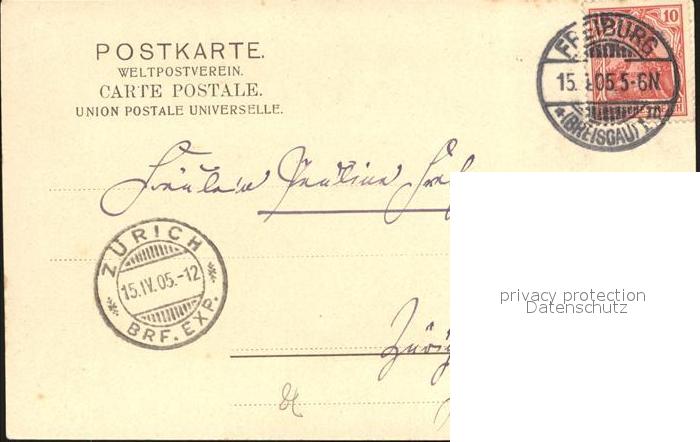 POSTKARTE.
WELTPOSTVEREIN.
CARTE POSTALE.
UNION POSTALE UNIVERSELLE.
10
FREIBURG
5-6N.
*(BREISGAU)
Fräulein Pauline
ZÜRICH
15.IV.05.-12
BRF. EXP.
privacy protection
Datenschutz